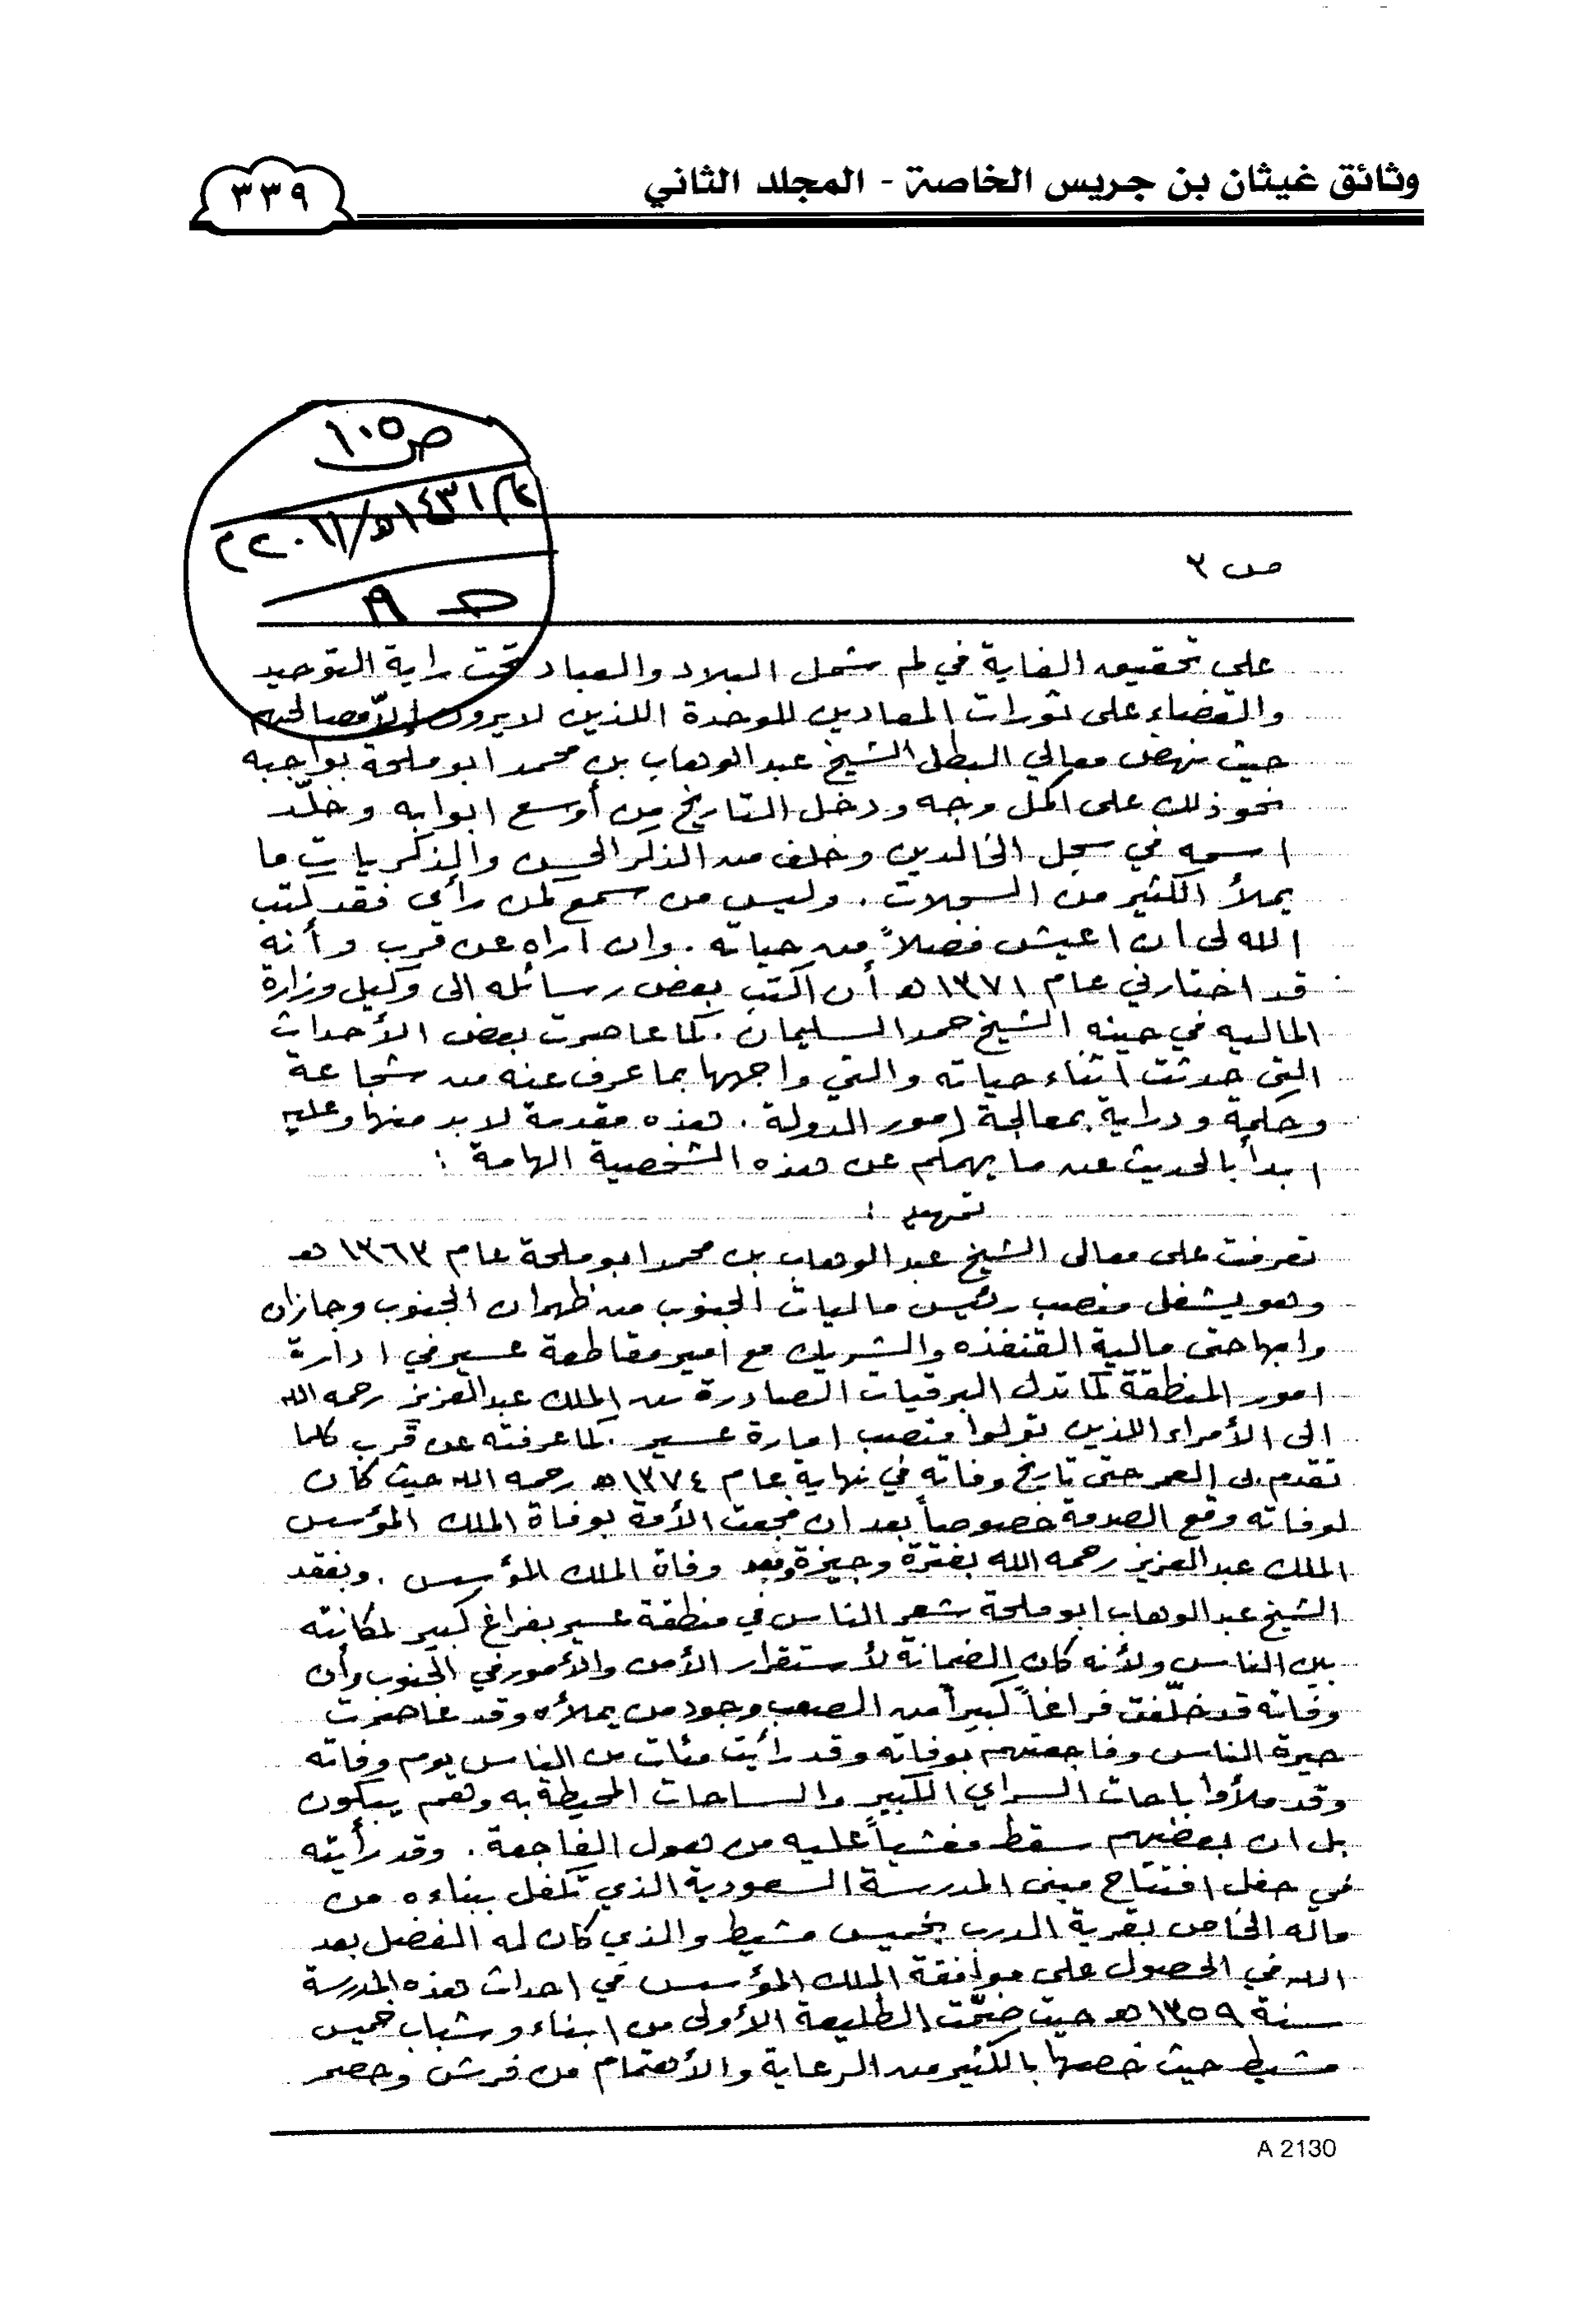 وثائق غيثان بن جريس الخاصة - المجلد الثاني
٣٣٩
ص ١٠٥
١٤٣١هـ/٢٠١١م
ص ٣
على تحقيق الغاية في لم شمل البلاد والعباد تحت راية التوحيد
والقضاء على ثورات المعادين للوحدة اللذين لا يرون إلاّ مصالحهم
حيث نهض معالي البطل الشيخ عبدالوهاب بن محمد ابو ملحة بواجبه
نحو ذلك على اكمل وجه ودخل التاريخ من أوسع ابوابه وخلّد
اسمه في سجل الخالدين وخلف من الذكر الحسن والذكريات ما
يملأ الكثير من السجلات . وليس من سمع كمن رأى فقد كتب
الله لى ان اعيش فضلاً من حياته . وان اراه عن قرب وأنه
قد اختارني عام ١٣٧١ هـ أن اكتب بعض رسائله الى وكيل وزارة
الماليه في حينه الشيخ حمد السليمان . كما عاصرت بعض الأحداث
التى حدثت اثناء حياته والتي واجهها بما عرف عنه من شجاعة
وحكمة ودراية بمعالجة امور الدولة . هذه مقدمة لابد منها وعليه
ابدأ بالحديث عن ما يهمكم عن هذه الشخصية الهامة :
تمهيد :
تعرفت على معالى الشيخ عبدالوهاب بن محمد ابو ملحة عام ١٣٦٣ هـ
وهو يشغل منصب رئيس ماليات الجنوب من ظهران الجنوب وجازان
وابها حتى مالية القنفذه والشريك مع امير مقاطعة عسير في ادارة
امور المنطقة كما تدل البرقيات الصادرة من الملك عبدالعزيز رحمه الله
الى الأمراء اللذين تولوا منصب امارة عسير . كما عرفته عن قرب كلما
تقدم بى العمر حتى تاريخ وفاته في نهاية عام ١٣٧٤ هـ رحمه الله حيث كان
لوفاته وقع الصدمة خصوصاً بعد ان فجعت الأمة بوفاة الملك المؤسس
الملك عبدالعزيز رحمه الله بفترة وجيزة وبعد وفاة الملك المؤسس . وبفقد
الشيخ عبدالوهاب ابو ملحة شعر الناس في منطقة عسير بفراغ كبير لمكانته
بين الناس ولأنه كان الضمانة لأستقرار الأمن والأمور في الجنوب وأن
وفاته قد خلّفت فراغاً كبيراً من الصعب وجود من يملأه وقد عاصرت
حيرة الناس وفاجعتهم بوفاته وقد رأيت مئات من الناس يوم وفاته
وقد ملأوا باحات السراي الكبير والساحات المحيطة به وهم يبكون
بل ان بعضهم سقط مغشياً عليه من هول الفاجعة . وقد رأيته
في حفل افتتاح مبنى المدرسة السعودية الذي تكفل ببناءه من
ماله الخاص بقرية الدرب بخميس مشيط والذي كان له الفضل بعد
الله في الحصول على موافقة الملك المؤسس في احداث هذه المدرسة
سنة ١٣٥٩ هـ حيث ضمّت الطليعة الأولى من ابناء وشباب خميس
مشيط حيث خصها بالكثير من الرعاية والأهتمام من فرش وحصر
A 2130